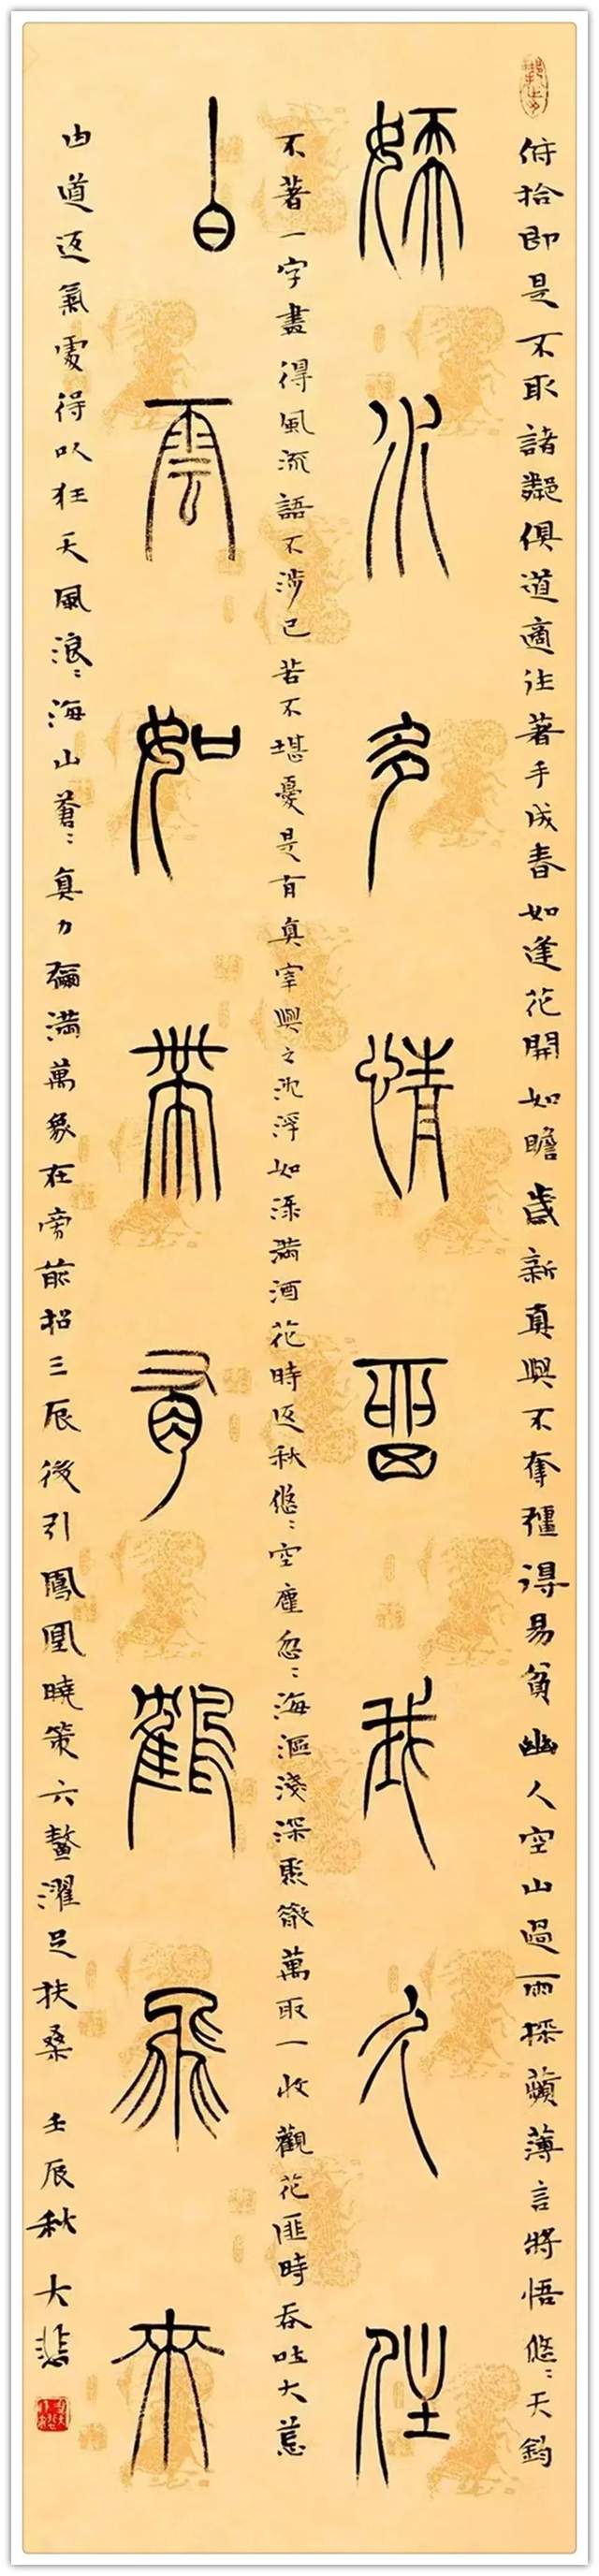 俯拾即是不取諸鄰俱道適往著手成春如逢花開如瞻歲新真與不奪彊得易貧幽人空山過雨採蘋薄言將悟悠〻天鈞
水多情留我久住
不著一字盡得風流語不涉已若不堪憂是有真宰與之沈浮如淥滿酒花時返秋悠〻空塵忽〻海漚淺深聚散萬取一收觀花匪時吞吐大荒
白雲如帶有鶴飛來
由道返氣處得以狂天風浪〻海山蒼〻真力彌滿萬象在旁前招三辰後引鳳凰曉策六鰲濯足扶桑 壬辰秋 大悲